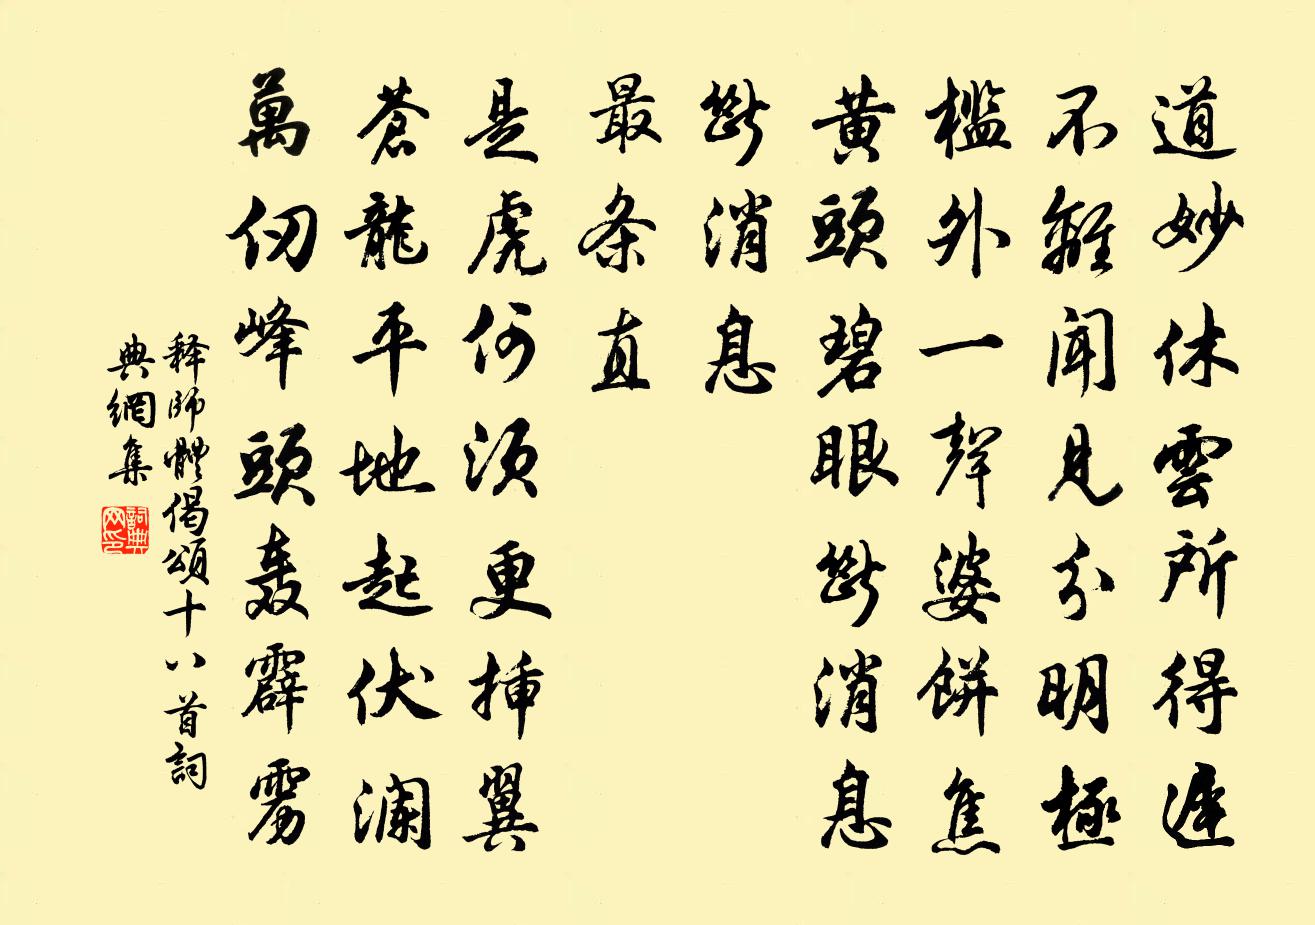 道妙休雲所得遲
不離聞見分明極
檻外一聲婆餅焦
黄頭碧眼斷消息
斷消息
最条直
是虎何須更插翼
蒼龍平地起伏瀾
萬仞峰頭轰霹雳
释師體偈頌十八首詞
典網集
詞典网印